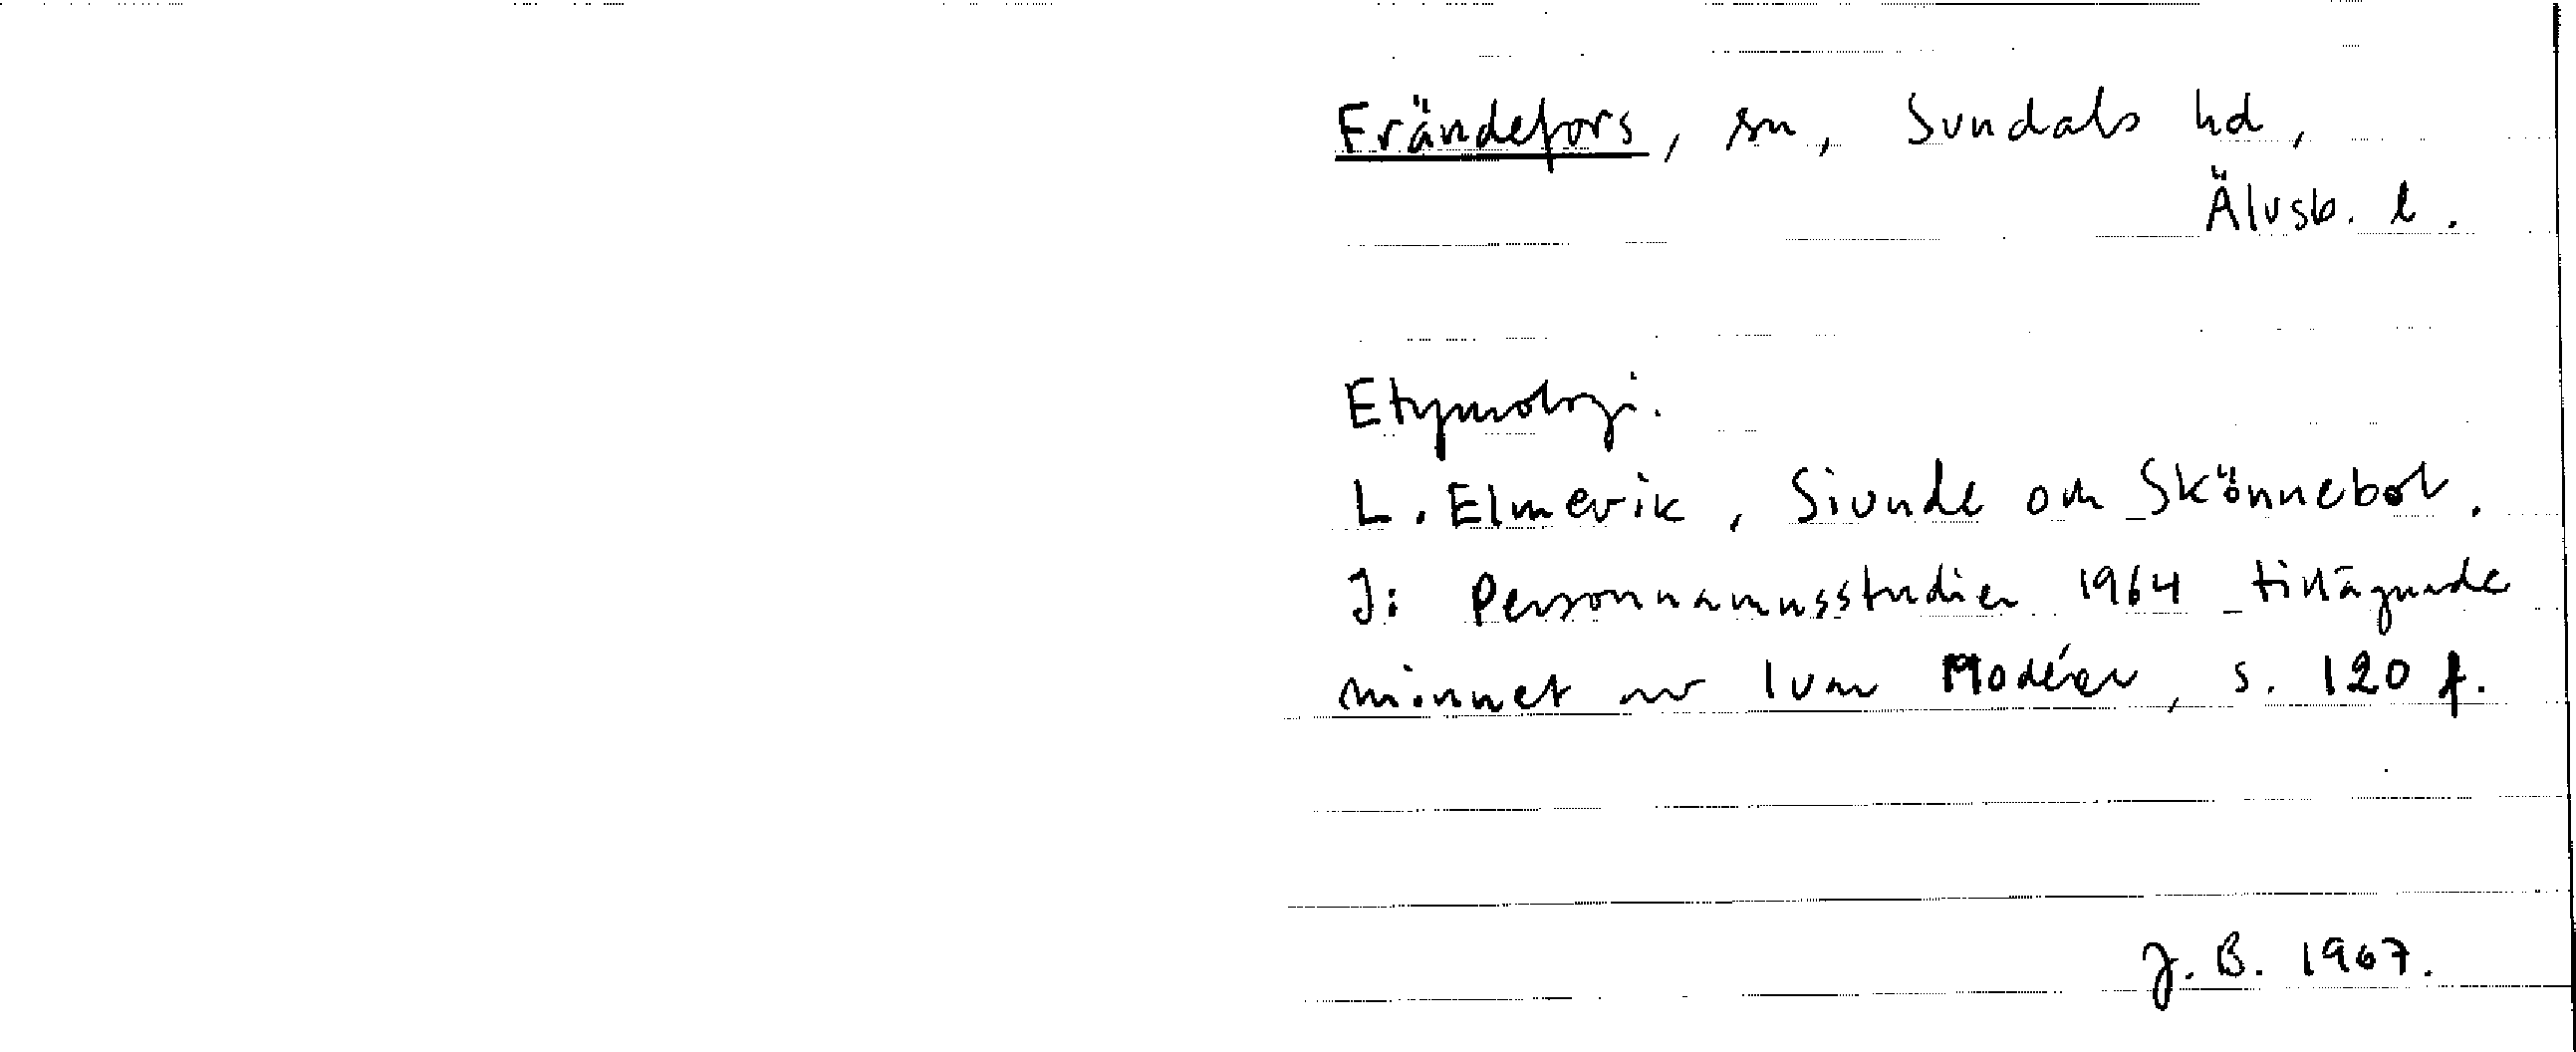 Frändefors, sn, Sundals hd,
Älvsb. l.
Etymologi.
L. Elmevik, Siunde och Skönnebol.
I: Personnamnsstudier 1964 tillägnade
minnet av Ivar Modéer, s. 120 f.
J. B. 1967.